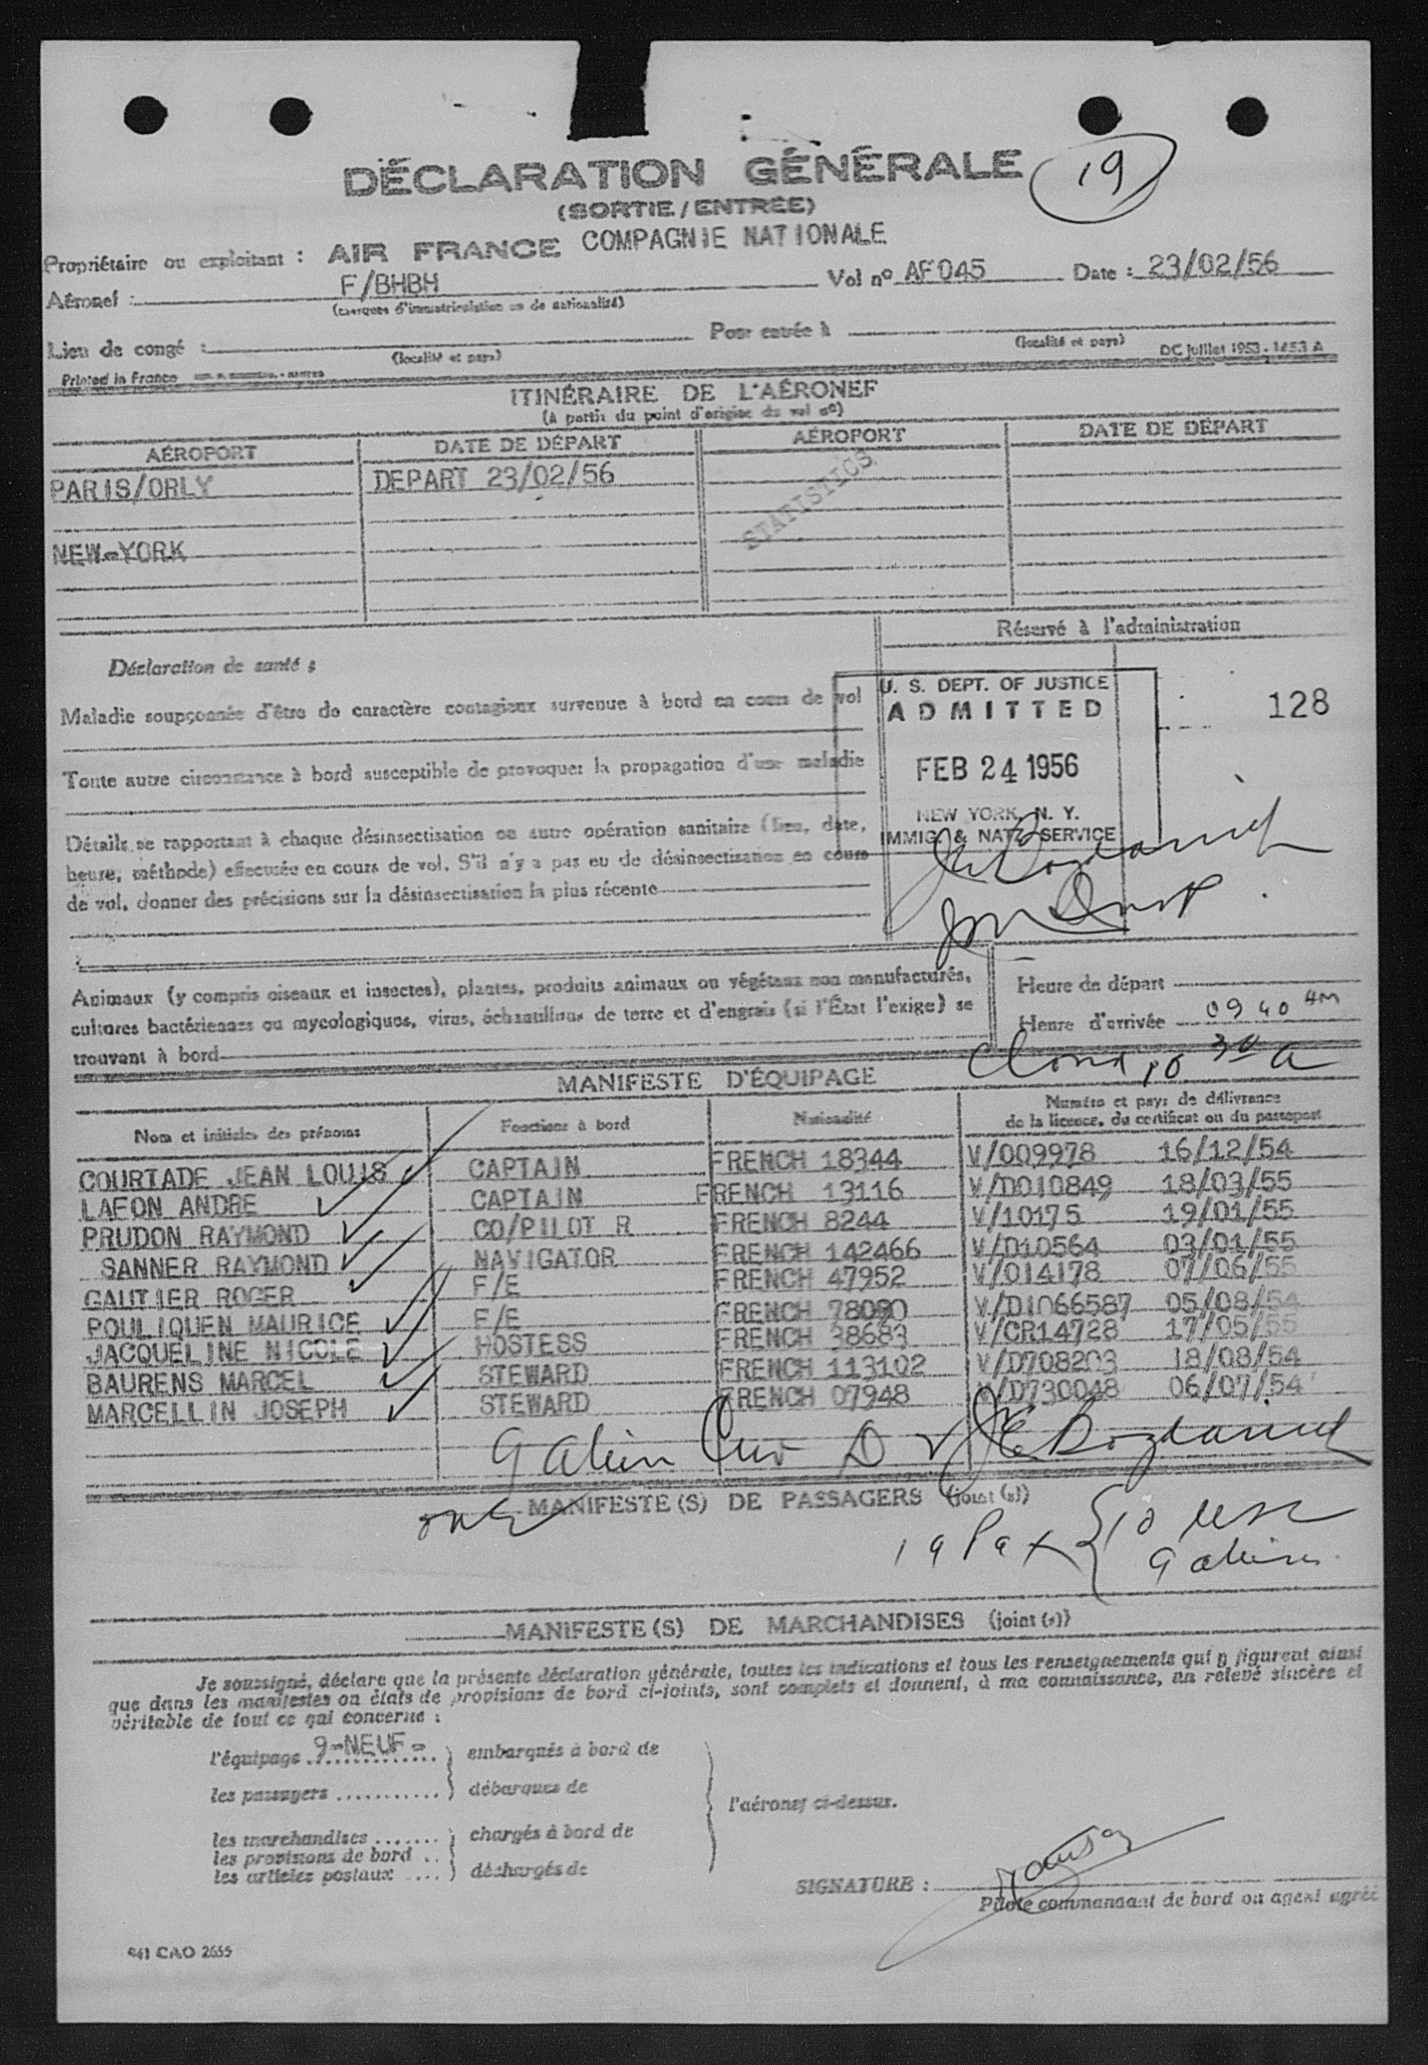 DÉCLARATION GÉNÉRALE
19
(SORTIE / ENTRÉE)
Propriétaire ou exploitant : AIR FRANCE COMPAGNIE NATIONALE
Aéronef : F/BHBH Vol nº AF 045 Date : 23/02/56
(marques d'immatriculation ou de nationalité)
Lieu de congé : Pour entrée à
(localité et pays) (localité et pays) DC Juillet 1953 - 1653 A
Printed in France
ITINÉRAIRE DE L'AÉRONEF
(à partir du point d'origine du vol nº)
AÉROPORT DATE DE DÉPART AÉROPORT DATE DE DÉPART
PARIS/ORLY DEPART 23/02/56
STATISTICS
NEW-YORK
Réservé à l'administration
Déclaration de santé :
U. S. DEPT. OF JUSTICE
ADMITTED
128
FEB 24 1956
NEW YORK, N. Y.
IMMIG. & NATZ SERVICE
Maladie soupçonnée d'être de caractère contagieux survenue à bord en cours de vol
Toute autre circonstance à bord susceptible de provoquer la propagation d'une maladie
Détails se rapportant à chaque désinsectisation ou autre opération sanitaire (lieu, date,
heure, méthode) effectuée en cours de vol. S'il n'y a pas eu de désinsectisation en cours
de vol, donner des précisions sur la désinsectisation la plus récente
Animaux (y compris oiseaux et insectes), plantes, produits animaux ou végétaux non manufacturés,
cultures bactériennes ou mycologiques, virus, échantillons de terre et d'engrais (si l'État l'exige) se
trouvant à bord
Heure de départ
Heure d'arrivée 0940 AM
10 30 a
MANIFESTE D'ÉQUIPAGE
Nom et initiales des prénoms Fonctions à bord Nationalité Numéro et pays de délivrance
de la licence, du certificat ou du passeport
COURTADE JEAN LOUIS CAPTAIN FRENCH 18344 V/009978 16/12/54
LAFON ANDRE CAPTAIN FRENCH 13116 V/D010849 18/03/55
PRUDON RAYMOND CO/PILOT R FRENCH 8244 V/10175 19/01/55
SANNER RAYMOND NAVIGATOR FRENCH 142466 V/D10564 03/01/55
GAUTIER ROGER F/E FRENCH 47952 V/014178 07/06/55
POULIQUEN MAURICE F/E FRENCH 78090 V/D1066587 05/08/54
JACQUELINE NICOLE HOSTESS FRENCH 38683 V/CR14728 17/05/55
BAURENS MARCEL STEWARD FRENCH 113102 V/D708203 18/08/54
MARCELLIN JOSEPH STEWARD FRENCH 07948 V/D730048 06/07/54
9 alien Crew D
MANIFESTE(S) DE PASSAGERS (joint (s))
19 Pax { 10 usc
9 aliens
MANIFESTE(S) DE MARCHANDISES (joint (s))
Je soussigné, déclare que la présente déclaration générale, toutes les indications et tous les renseignements qui y figurent ainsi
que dans les manifestes ou états de provisions de bord ci-joints, sont complets et donnent, à ma connaissance, un relevé sincère et
véritable de tout ce qui concerne :
l'équipage 9-NEUF- embarqués à bord de
les passagers ........... débarqués de
l'aéronef ci-dessus.
les marchandises ....... chargés à bord de
les provisions de bord ..
les articles postaux .... déchargés de
SIGNATURE :
Pilote commandant de bord ou agent agréé
641 CAO 2655